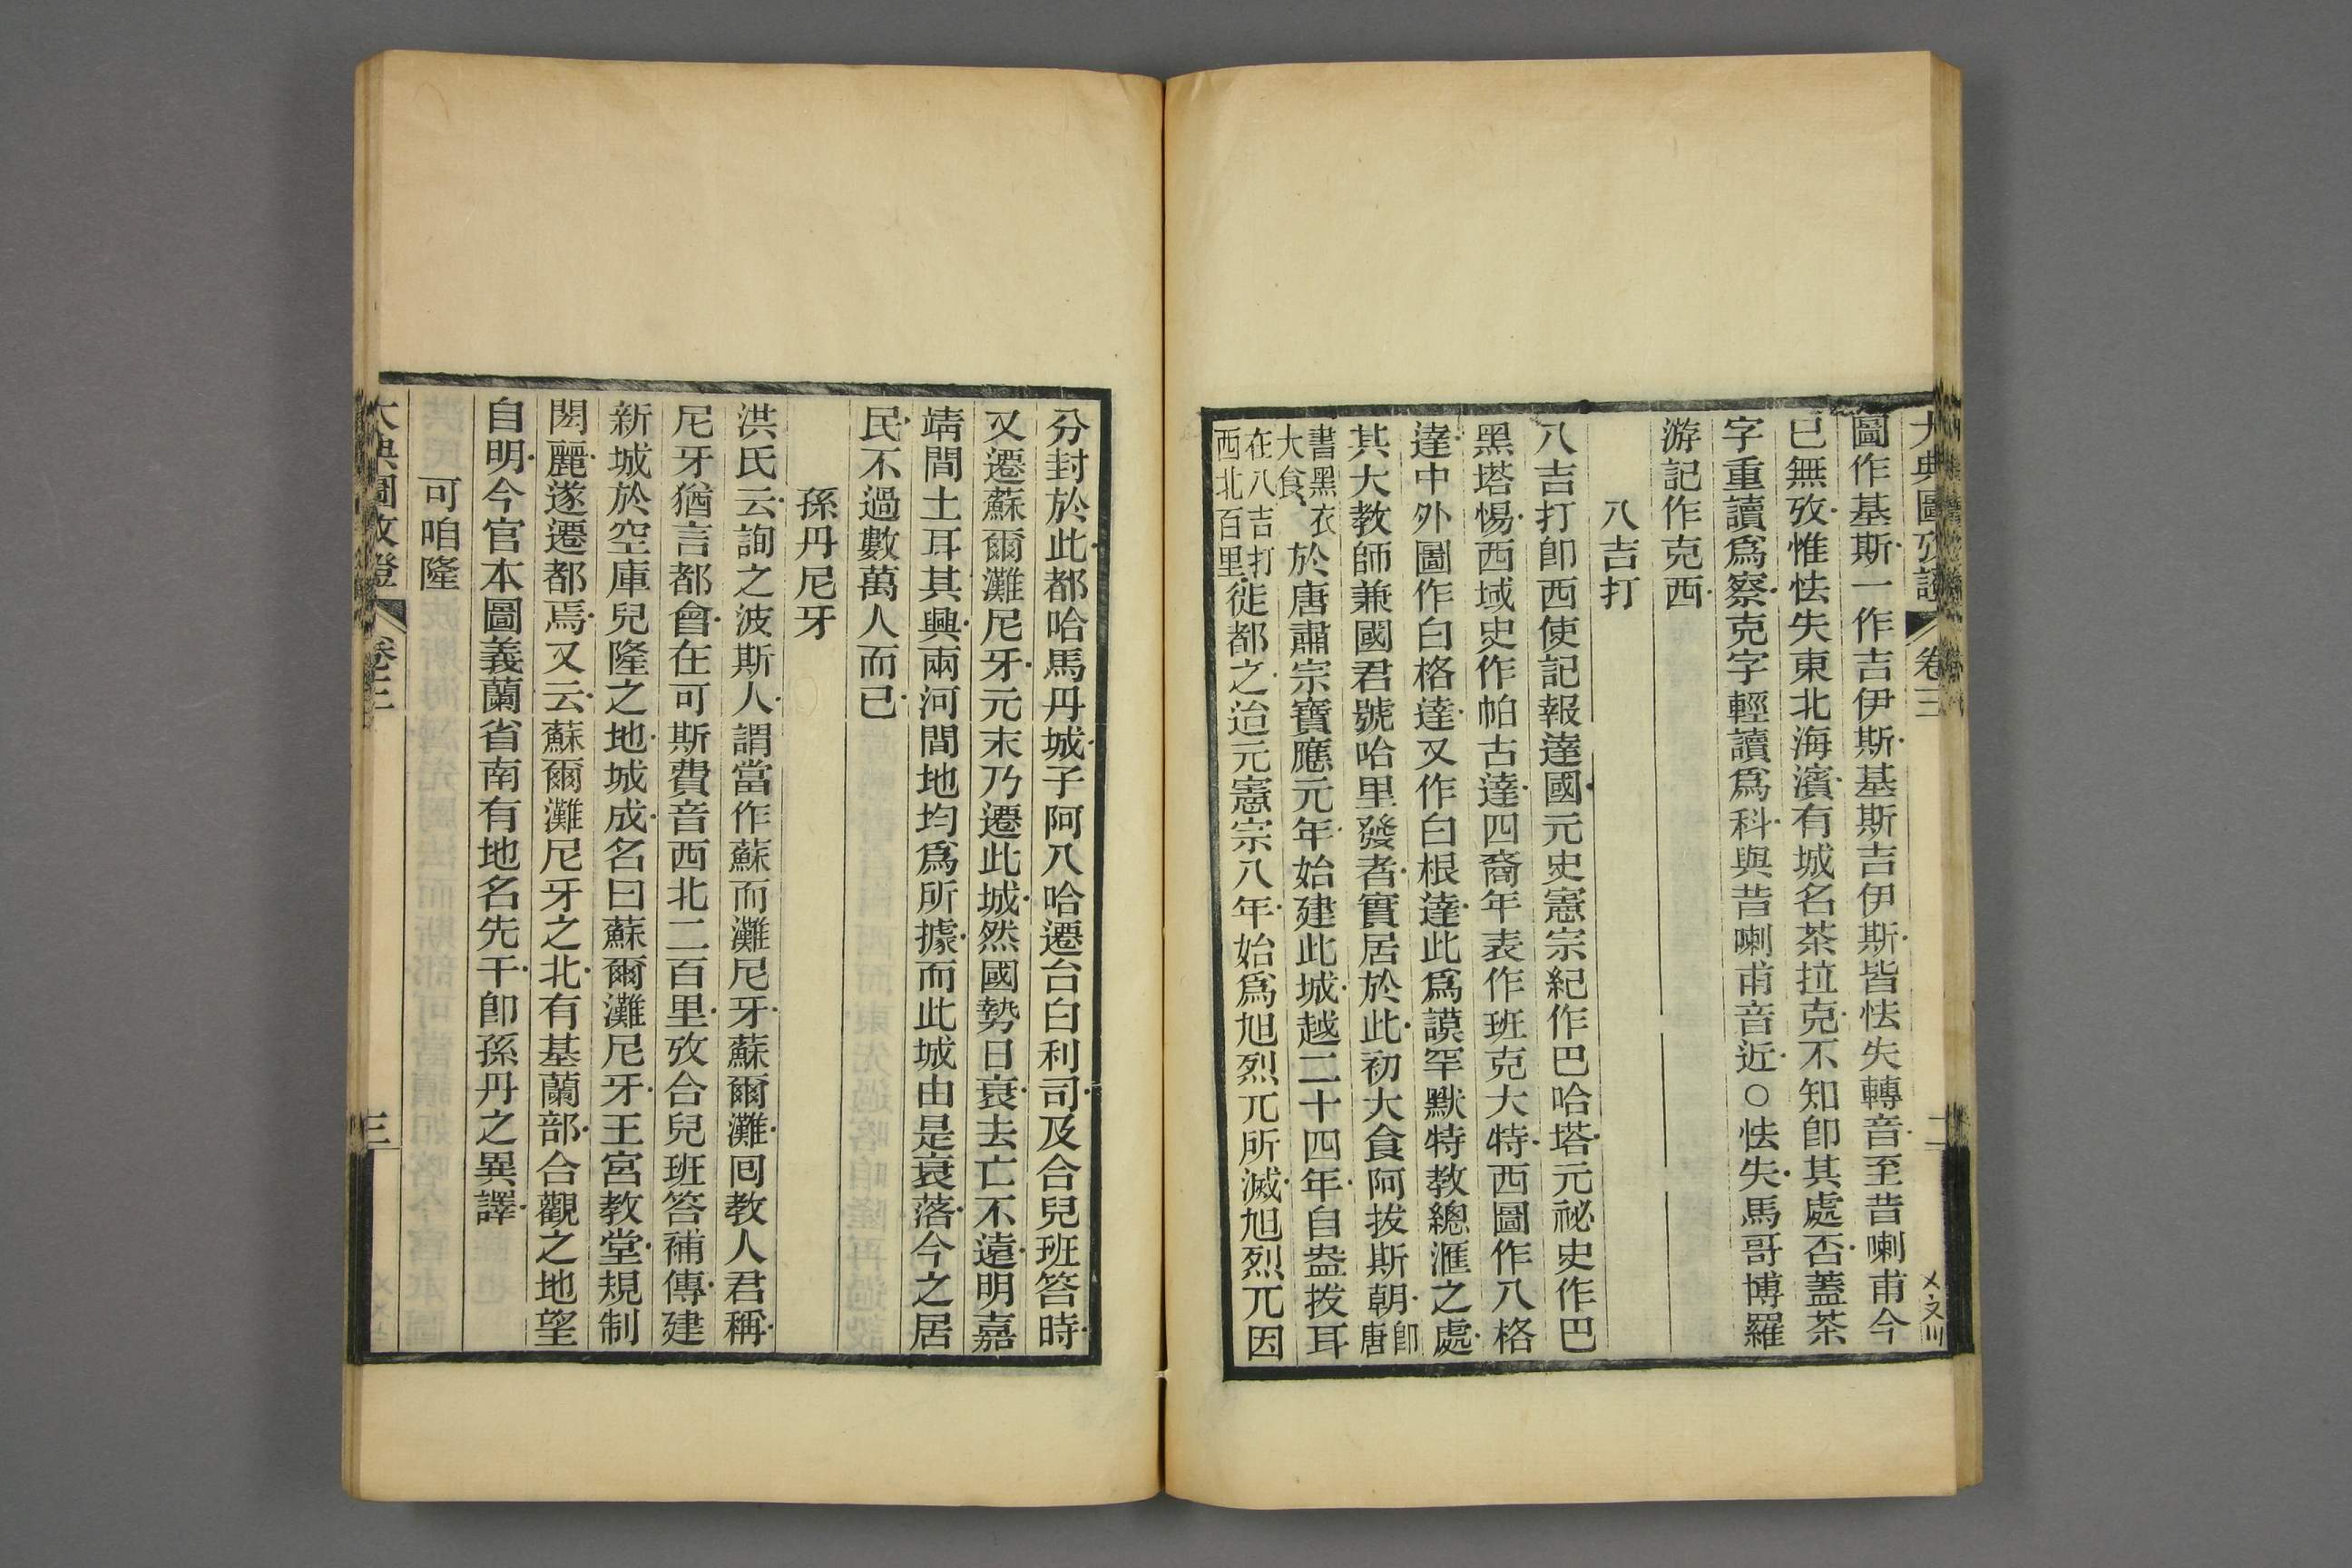 大典圖攷證 卷三
圖作基斯一作吉伊斯基斯吉伊斯皆怯失轉音至昔喇甫今
已無攷惟怯失東北海濱有城名茶拉克不知卽其處否蓋茶
字重讀爲察克字輕讀爲科與昔喇甫音近○怯失馬哥博羅
游記作克西
八吉打
八吉打卽西使記報達國元史憲宗紀作巴哈塔元祕史作巴
黑塔惕西域史作帕古達四裔年表作班克大特西圖作八格
達中外圖作白格達又作白根達此爲謨罕默特教總滙之處
其大教師兼國君號哈里發者實居於此初大食阿拔斯朝卽唐
書黑衣大食於唐肅宗寶應元年始建此城越二十四年自盎拔耳
在八吉打西北百里徙都之迨元憲宗八年始爲旭烈兀所滅旭烈兀因
分封於此都哈馬丹城子阿八哈遷台白利司及合兒班答時
又遷蘇爾灘尼牙元末乃遷此城然國勢日衰去亡不遠明嘉
靖間土耳其興兩河間地均爲所據而此城由是衰落今之居
民不過數萬人而已
孫丹尼牙
洪氏云詢之波斯人謂當作蘇而灘尼牙蘇爾灘囘教人君稱
尼牙猶言都會在可斯費音西北二百里攷合兒班答補傳建
新城於空庫兒隆之地城成名曰蘇爾灘尼牙王宮教堂規制
閎麗遂遷都焉又云蘇爾灘尼牙之北有基蘭部合觀之地望
自明今官本圖義蘭省南有地名先干卽孫丹之異譯
可咱隆
大典圖攷證 卷三 三